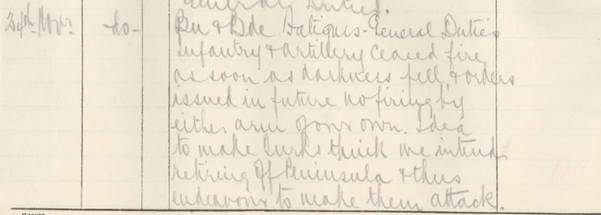 General Duties.
24th Novr. -do- Bn & Bde Fatigues. General Duties
Infantry & Artillery ceased fire
as soon as darkness fell, & orders
issued in future no firing by
either arm of our own. Idea
to make Turks think we intend
retiring off Peninsula & thus
endeavour to make them attack.